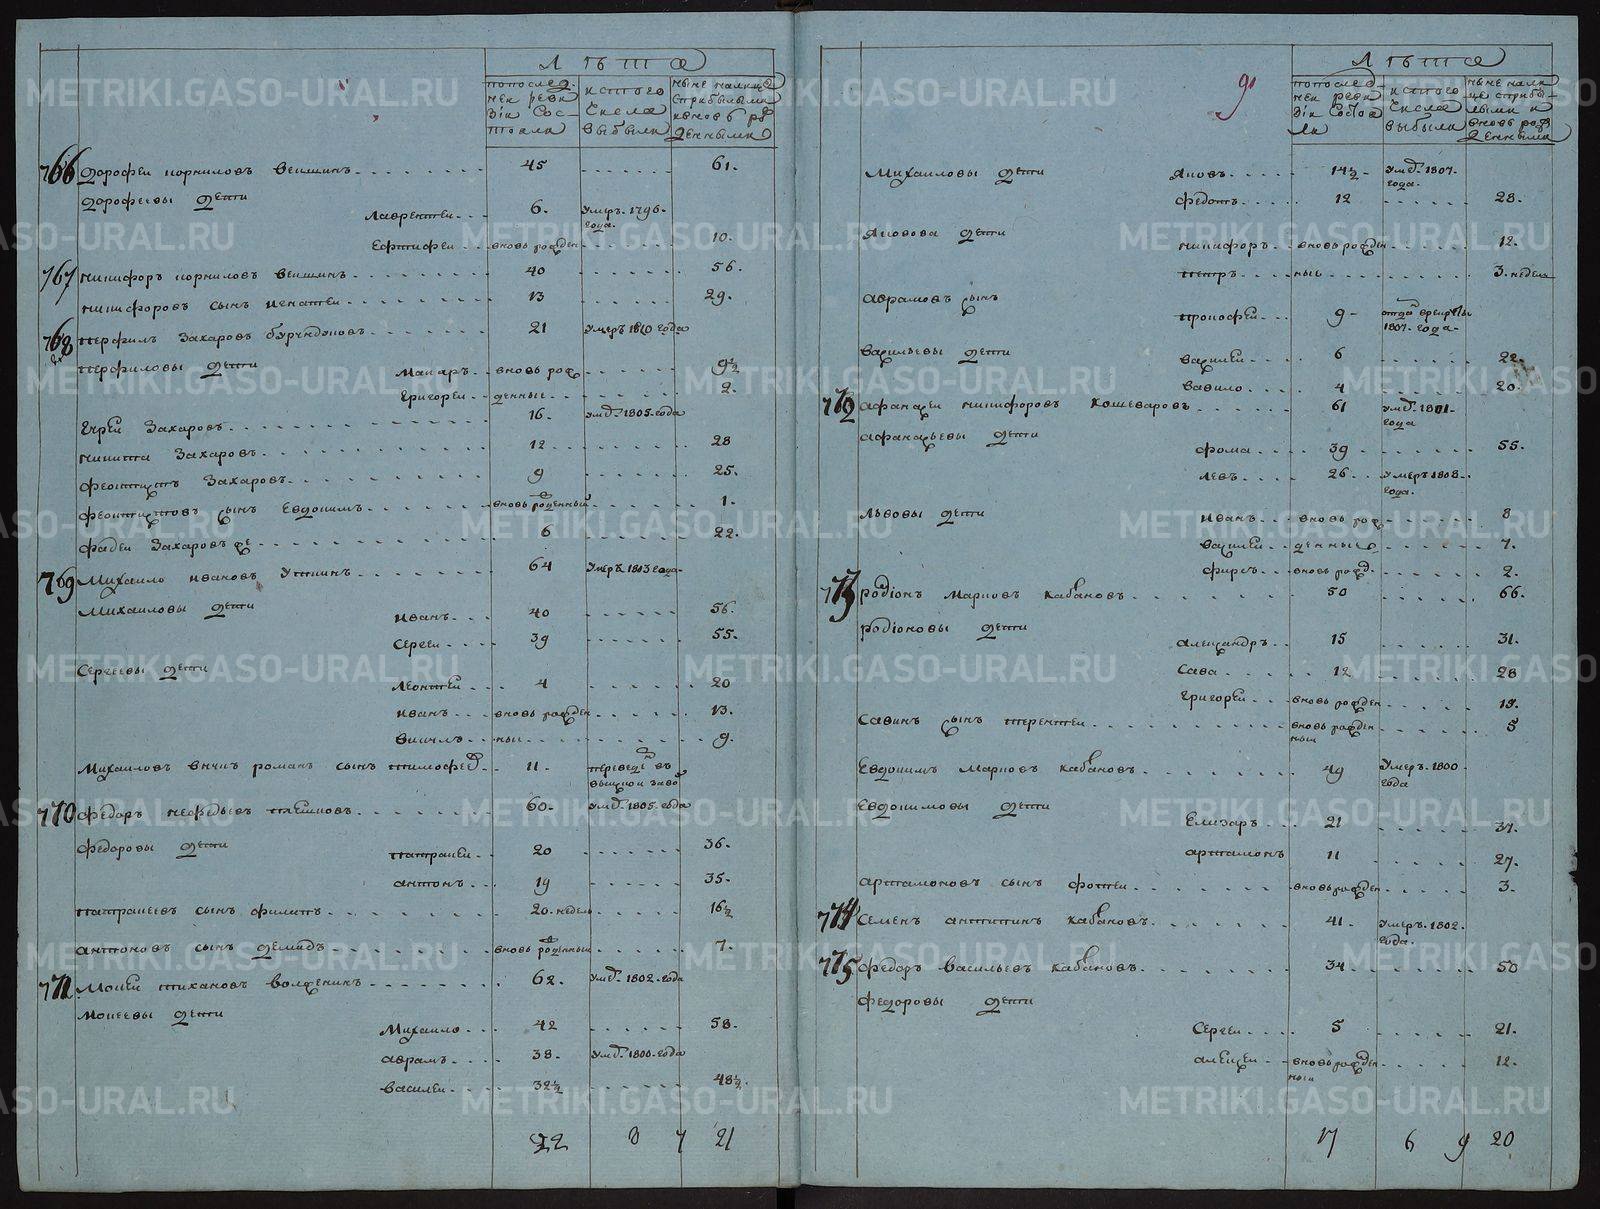 Лѣта
попослед
ней реви
зіи Сос
тояли
исптого
Числа
выбыли
ныне налицѣ
Сприбылыми
ивновь рож
денными
766 Дорофеи корниловъ вешинъ 45 61.
Дорофеевы дети
Лаврентеи 6. Умеръ. 1796. года.
Ефтифеи вновь рожден 10.
767 никифоръ корниловъ вешинъ 40 56.
никифоровъ сынъ игнатеи 13 29.
768 перфилъ Захаровъ бурундуковъ 21 умеръ 1810 года
перфиловы дети
Макаръ вновь рож 9½
Григореи денныи 2.
Гуреи Захаровъ 16. умеръ. 1805. года
никита Захаровъ 12 28
феоктистъ Захаровъ 9 25.
феоктистовъ сынъ Евдокимъ вновь рожденныи 1.
фадеи Захаровъ 6 22.
769 Михаило ивановъ Уткинъ 64 Умеръ 1803 года
Михаиловы дети
иванъ 40 56.
Сергеи 39 55.
Сергеевы дети
Леонтеи 4 20
иванъ вновь рожден 13.
ныи 9.
Михаиловъ внукъ романъ сынъ тимофеи 11. переведенъ въ
770 федоръ нефедьевъ 60. умеръ. 1805. года
федоровы дети
патракеи 20 36.
антонъ 19 35.
патракеевъ сынъ филипъ 20. недель 16½
антоновъ сынъ демидъ вновь рожденныи 7.
771 Мокеи тихановъ волженинъ 62. умеръ. 1802. года
Мокеевы дети
Михаило 42 58.
аврамъ 38. умеръ. 1800. года
василеи 32½ 48½.
22 8 7 21
9
Лѣта
попослед
ней реви
зіи Состоя
ли
исптого
Числа
выбыли
ныне нали
це сприбы
лыми и
вновь рож
денными
Михаиловы дети Яковъ 14½ умеръ. 1807. года.
федотъ 12 28.
Яковова дети
никифоръ вновь рожден 12.
петръ ныи 3. недели
аврамовъ сынъ
прокофеи 9 1807. года
Васильевы дети
василеи 6 22.
вавило 4 20.
772 афанасеи никифоровъ Кошеваровъ 61 умеръ. 1801. года
афанасьевы дети
фома 39 55.
левъ 26 умеръ 1808. года.
Львовы дети
иванъ вновь рож 8
василеи денныи 7.
фирсъ вновь рожд 2.
773 родіонъ Марковъ кабаковъ 50 66.
родіоновы дети
александръ 15 31.
Сава 12 28
григореи вновь рожден 15.
Савинъ сынъ терентеи вновь рожден ныи 5
Евдокимъ Марковъ кабаковъ 49 Умеръ. 1800 года
Евдокимовы дети
Елизаръ 21 37.
артамонъ 11 27.
артамоновъ сынъ фотеи вновь рожден 3.
774 Семенъ антипинъ кабаковъ 41. Умеръ. 1802. года.
775 федоръ васильевъ кабаковъ 34 50
федоровы дети
Сергеи 5 21.
алексеи вновь рожден ныи 12.
17 6 9 20
METRIKI.GASO-URAL.RU